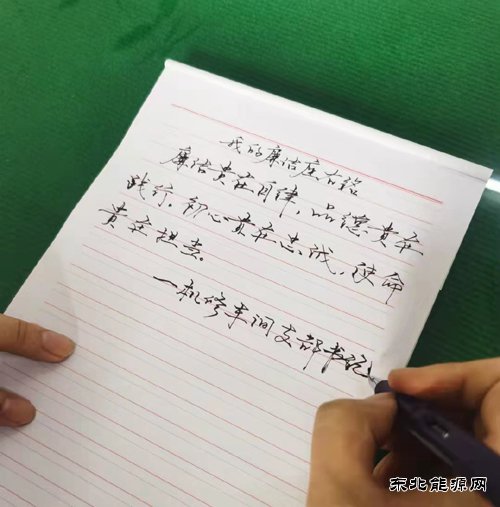 我的廉洁座右铭
廉洁贵在自律,品德贵在
践行,初心贵在忠诚,使命
贵在担责。
一机修车间支部书记
东北能源网